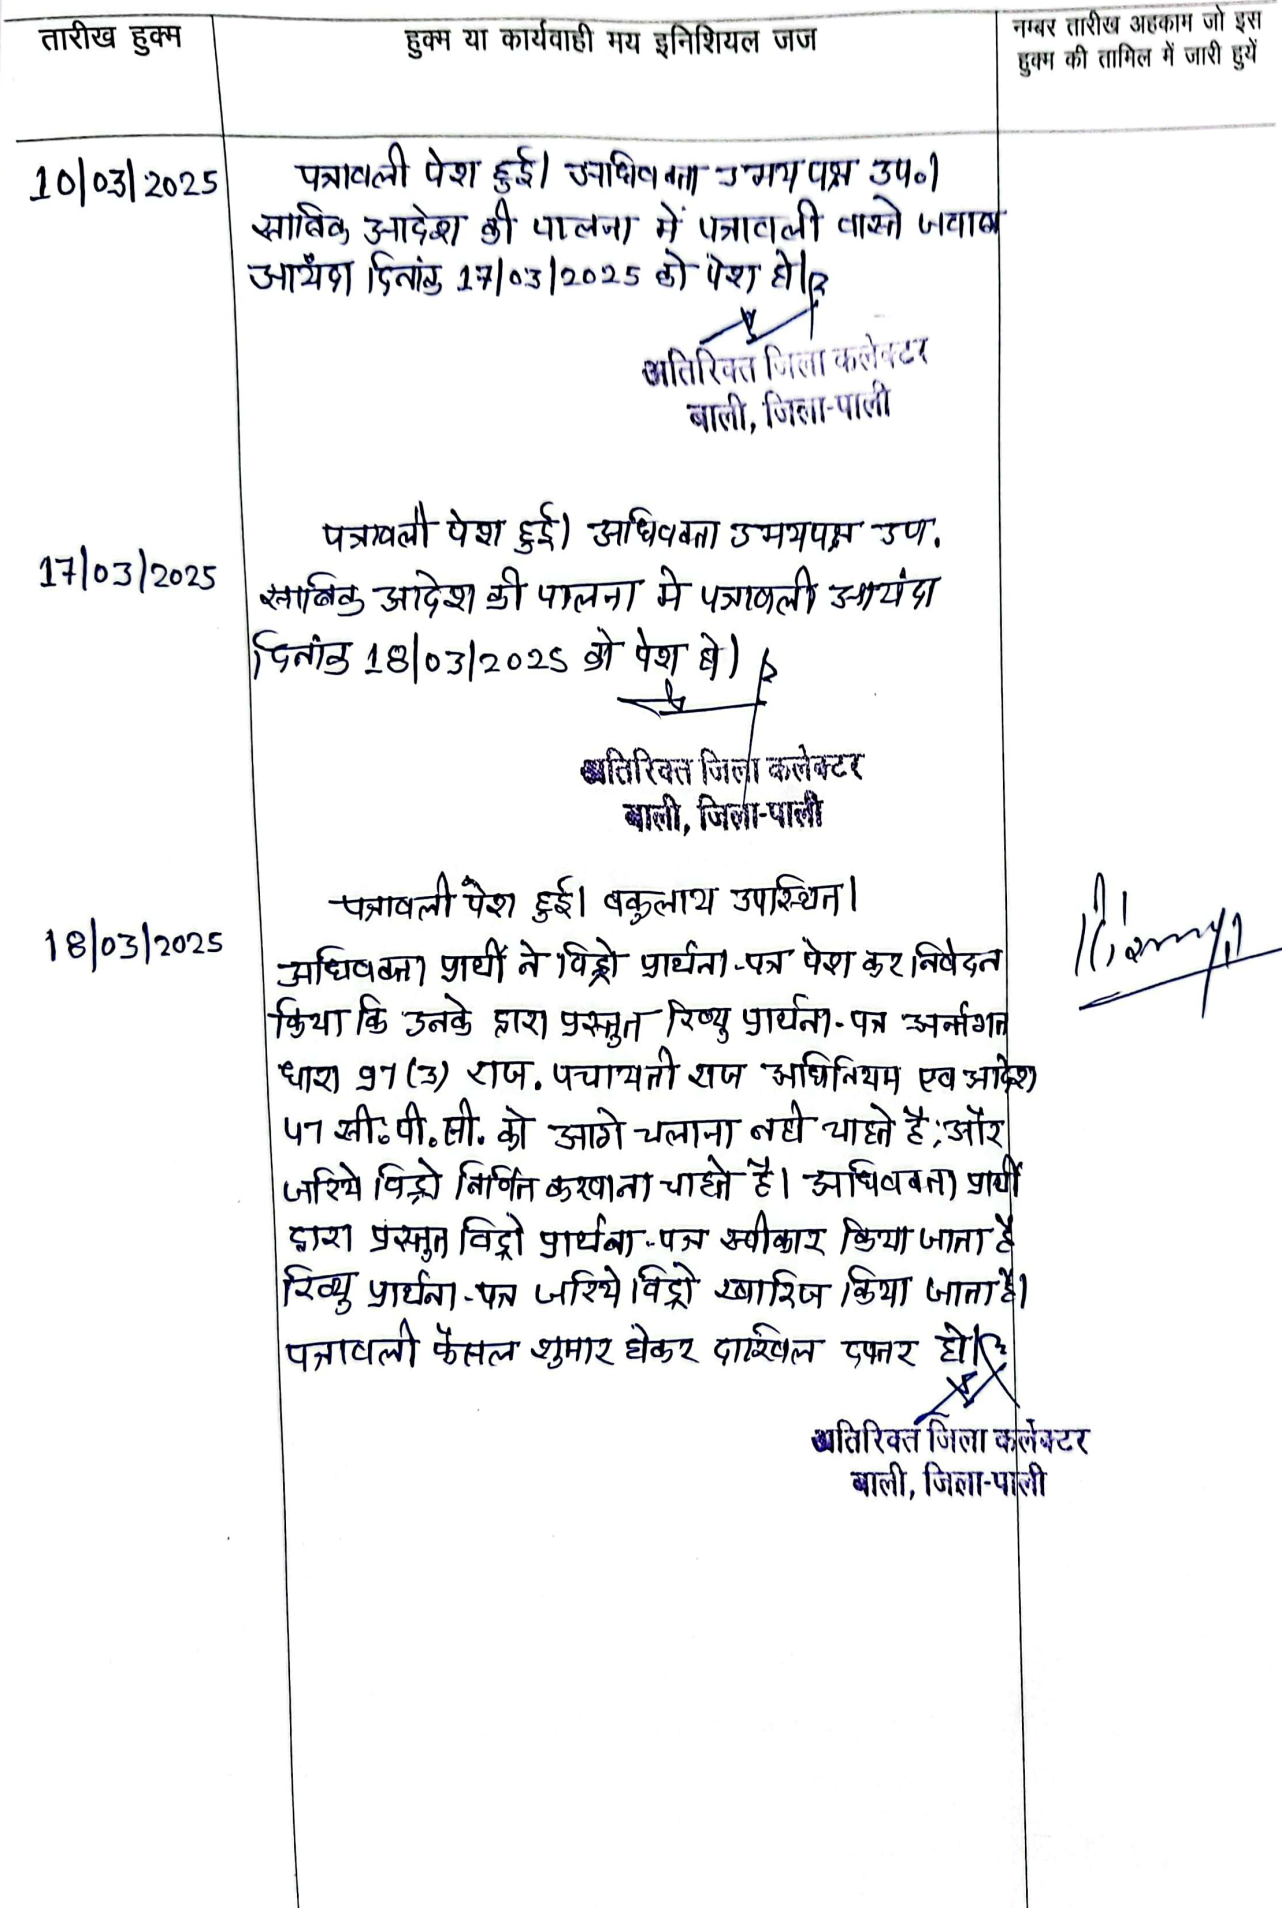 तारीख हुक्म
हुक्म या कार्यवाही मय इनिशियल जज
नम्बर तारीख अहकाम जो इस
हुक्म की तामिल में जारी हुयें
10/03/2025
पत्रावली पेश हुई। अधिवक्ता उभयपक्ष उप०।
साबिक आदेश की पालना में पत्रावली वास्ते जवाब
आयंदा दिनांक 17/03/2025 को पेश हो।
अतिरिक्त जिला कलेक्टर
बाली, जिला-पाली
17/03/2025
पत्रावली पेश हुई। अधिवक्ता उभयपक्ष उप.
साबिक आदेश की पालना मे पत्रावली आयंदा
दिनांक 18/03/2025 को पेश हो।
अतिरिक्त जिला कलेक्टर
बाली, जिला-पाली
18/03/2025
पत्रावली पेश हुई। वकुलाय उपस्थित।
अधिवक्ता प्रार्थी ने विड्रो प्रार्थना-पत्र पेश कर निवेदन
किया कि उनके द्वारा प्रस्तुत रिव्यु प्रार्थना-पत्र अर्न्तगत
धारा 97(3) राज. पचायती राज अधिनियम एव आदेश
47 सी.पी.सी. को आगे चलाना नही चाहते है; और
जरिये विड्रो निर्णित करवाना चाहते है। अधिवक्ता प्रार्थी
द्वारा प्रस्तुत विड्रो प्रार्थना-पत्र स्वीकार किया जाता है
रिव्यु प्रार्थना-पत्र जरिये विड्रो खारिज किया जाता है।
पत्रावली फैसल शुमार होकर दाखिल दफ्तर हो।
अतिरिक्त जिला कलेक्टर
बाली, जिला-पाली